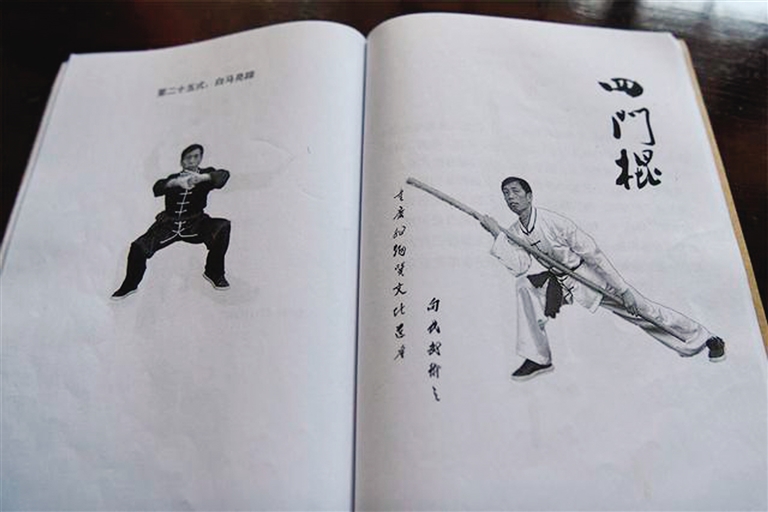 第二十五式：白马亮蹄
四門棍
重庆非物质文化遗产
向氏武術之